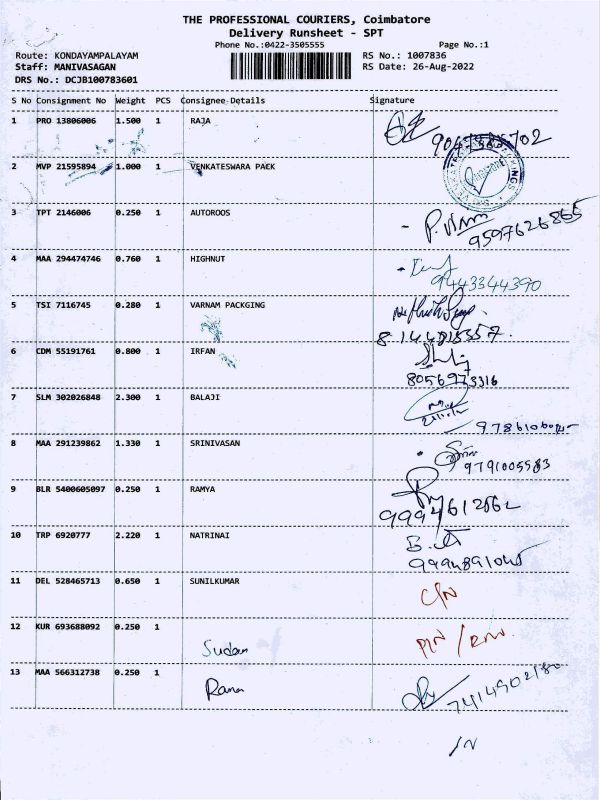 THE PROFESSIONAL COURIERS, Coimbatore
Delivery Runsheet - SPT
Phone No.:0422-3505555 Page No.:1
Route: KONDAYAMPALAYAM RS No.: 1007836
Staff: MANIVASAGAN RS Date: 26-Aug-2022
DRS No.: DCJB100783601
S No Consignment No Weight PCS Consignee Details Signature
1 PRO 13806006 1.500 1 RAJA
2 MVP 21595894 1.000 1 VENKATESWARA PACK
3 TPT 2146006 0.250 1 AUTOROOS
9597626865
4 MAA 294474746 0.760 1 HIGHNUT
9443344390
5 TSI 7116745 0.280 1 VARNAM PACKGING
6 CDM 55191761 0.800 1 IRFAN
8056973316
7 SLM 302026848 2.300 1 BALAJI
8 MAA 291239862 1.330 1 SRINIVASAN
9791005583
9 BLR 5400605097 0.250 1 RAMYA
10 TRP 6920777 2.220 1 NATRINAI
11 DEL 528465713 0.650 1 SUNILKUMAR
C/N
12 KUR 693688092 0.250 1
13 MAA 566312738 0.250 1